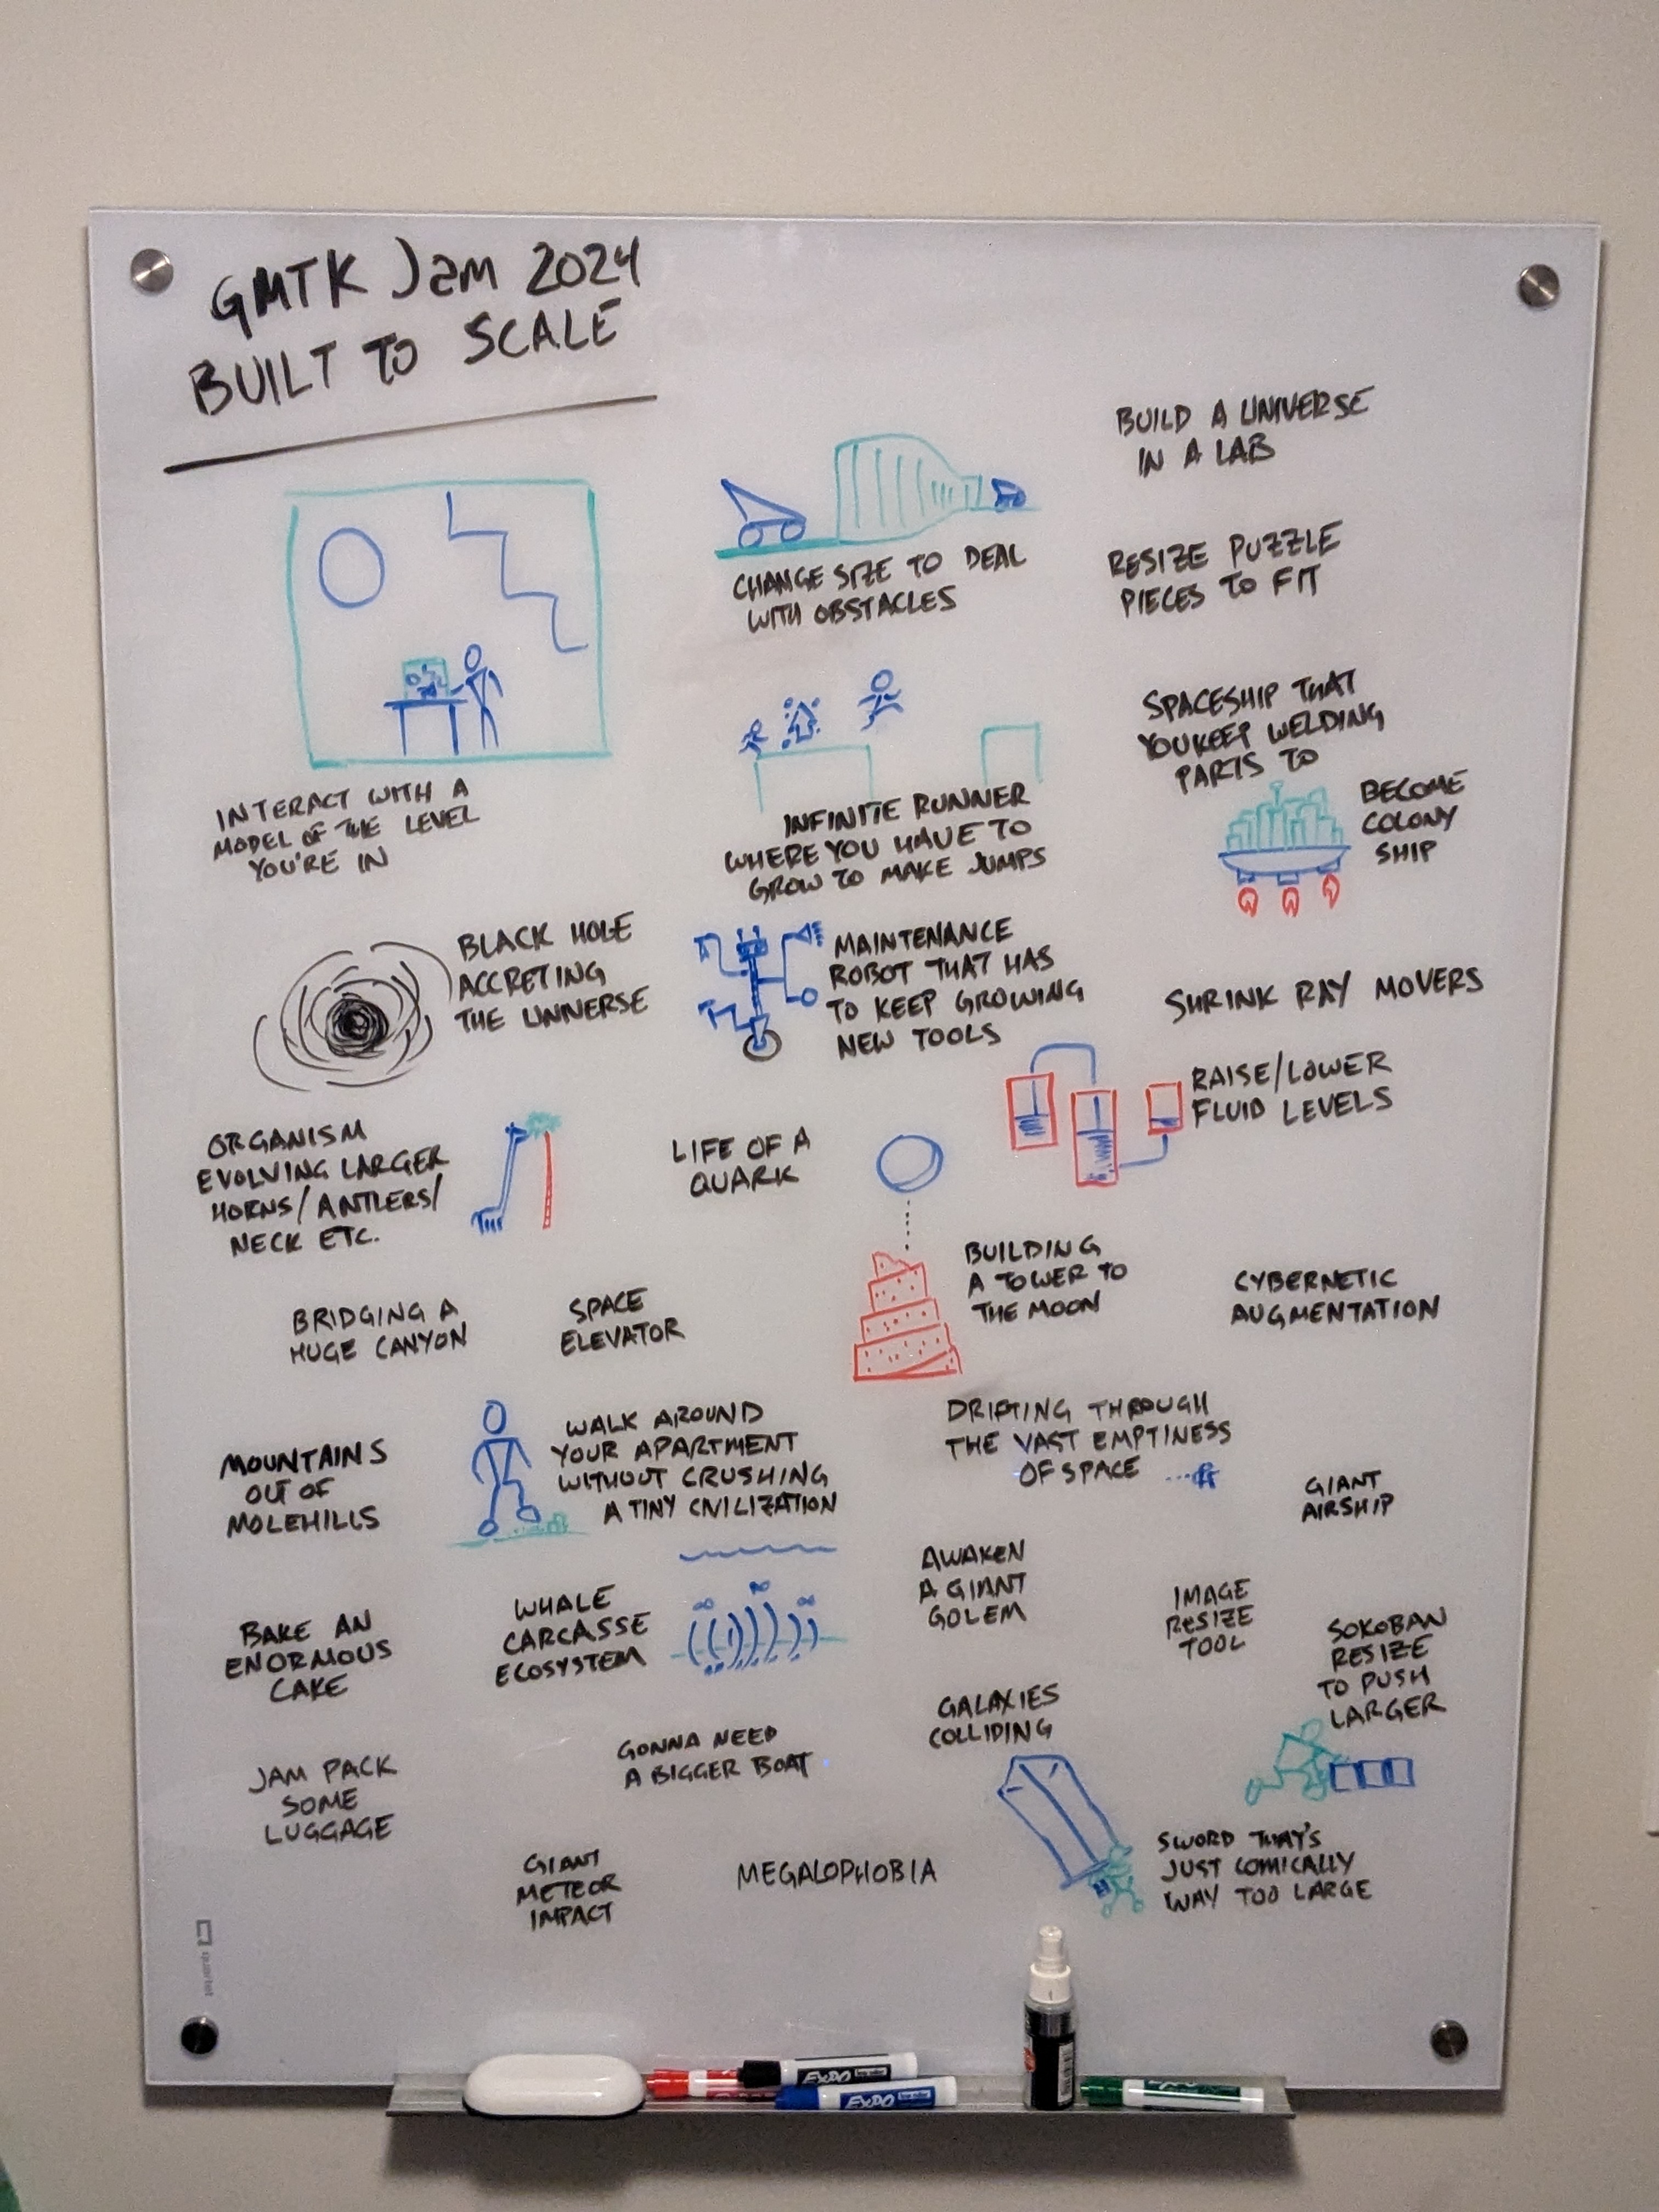 GMTK Jam 2024
BUILT TO SCALE
BUILD A UNIVERSE
IN A LAB
CHANGE SIZE TO DEAL
WITH OBSTACLES
RESIZE PUZZLE
PIECES TO FIT
INTERACT WITH A
MODEL OF THE LEVEL
YOU'RE IN
INFINITE RUNNER
WHERE YOU HAVE TO
GROW TO MAKE JUMPS
SPACESHIP THAT
YOU KEEP WELDING
PARTS TO
BECOME
COLONY
SHIP
BLACK HOLE
ACCRETING
THE UNIVERSE
MAINTENANCE
ROBOT THAT HAS
TO KEEP GROWING
NEW TOOLS
SHRINK RAY MOVERS
RAISE/LOWER
FLUID LEVELS
ORGANISM
EVOLVING LARGER
HORNS/ANTLERS/
NECK ETC.
LIFE OF A
QUARK
BUILDING
A TOWER TO
THE MOON
CYBERNETIC
AUGMENTATION
BRIDGING A
HUGE CANYON
SPACE
ELEVATOR
MOUNTAINS
OUT OF
MOLEHILLS
WALK AROUND
YOUR APARTMENT
WITHOUT CRUSHING
A TINY CIVILIZATION
DRIFTING THROUGH
THE VAST EMPTINESS
OF SPACE
GIANT
AIRSHIP
BAKE AN
ENORMOUS
CAKE
WHALE
CARCASSE
ECOSYSTEM
AWAKEN
A GIANT
GOLEM
IMAGE
RESIZE
TOOL
SOKOBAN
RESIZE
TO PUSH
LARGER
JAM PACK
SOME
LUGGAGE
GONNA NEED
A BIGGER BOAT
GALAXIES
COLLIDING
GIANT
METEOR
IMPACT
MEGALOPHOBIA
SWORD THAT'S
JUST COMICALLY
WAY TOO LARGE
quartet
EXPO
EXPO